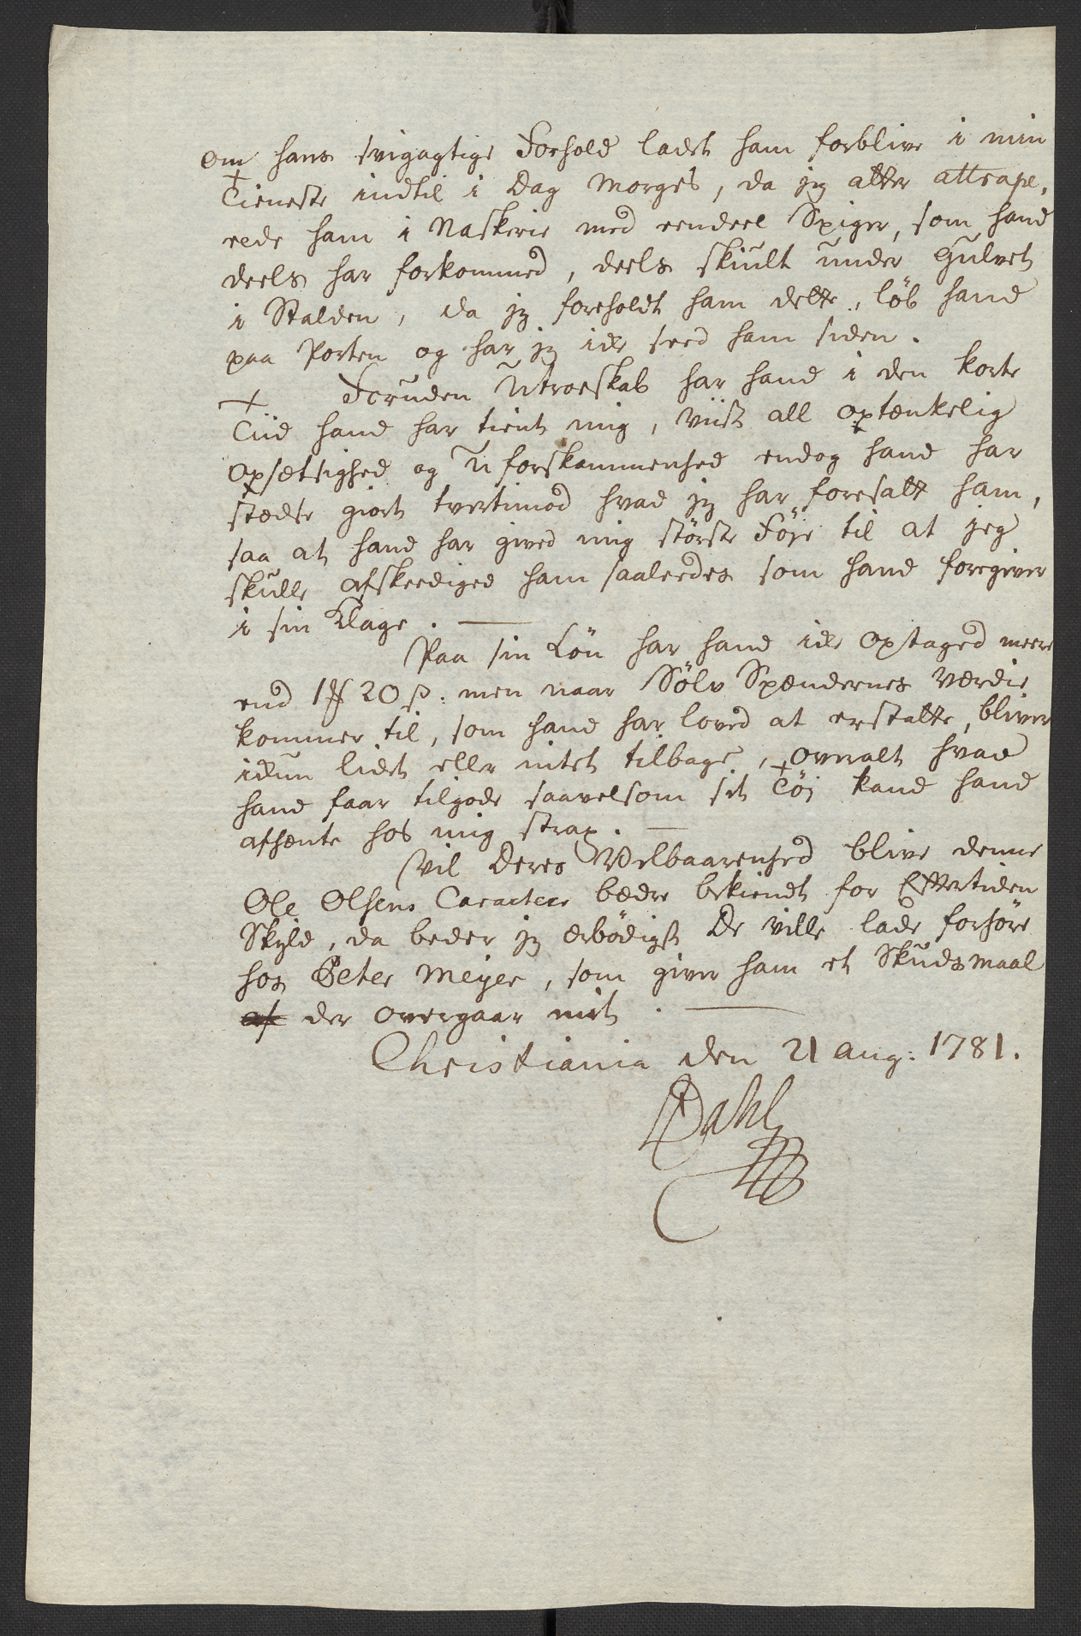 om hans svigagtige Forhold ladet ham forblive i min
Tieneste indtil i Dag Morges, da jeg atter attrape,
rede ham i Naskerie med eendeel Spiger, som hand
deels har forkommed, deels skiult under Gulvet
i Stalden, da jeg foreholdt ham dette, løb hand
paa Porten og har jeg icke seed ham siden.
Foruden Utroeskab har hand i den korte
Tiid hand har tient mig, viist all optænkelig
Opsætsighed og Uforskammenhed endog hand har
stædse giort tvertimod hvad jeg har foresatt ham,
saa at hand har gived mig største Føje til at jeg
skulle afskeediged ham saaleedes som hand foregiver
i sin Klage.
Paa sin Løn har hand icke optaged meere
end 1 20 ß: men naar Sølv Spændernes Værdie
kommer til, som hand har loved at erstatte, bliver
ickun lidet eller intet tilbage, hvad
hand faar tilgode saavelsom sit Tøj kand hand
afhente hos mig strax.
Vil Deres Velbaarenhed blive denne
Ole Olsens Caracteer bædre bekiendt for Efftertiden
Skyld, da beder jeg ærbødigst De ville lade forhøre
hos Peter Meyer, som giver ham et Skudsmaal
der overgaar mit.
Christiania den 21 Aug: 1781.
Dahl